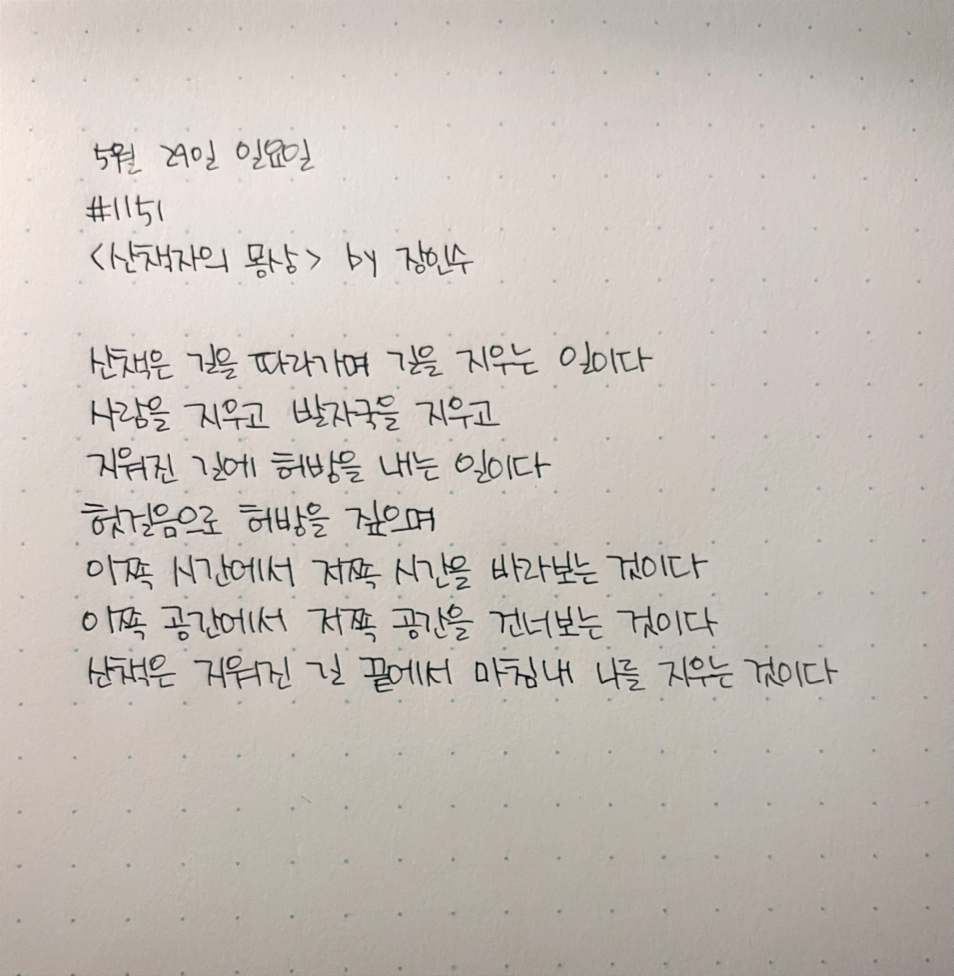 5월 29일 일요일
#1151
<산책자의 몽상> by 장인수
산책은 길을 따라가며 길을 지우는 일이다
사람을 지우고 발자국을 지우고
지워진 길에 허방을 내는 일이다
헛걸음으로 허방을 짚으며
이쪽 시간에서 저쪽 시간을 바라보는 것이다
이쪽 공간에서 저쪽 공간을 건너보는 것이다
산책은 지워진 길 끝에서 마침내 나를 지우는 것이다